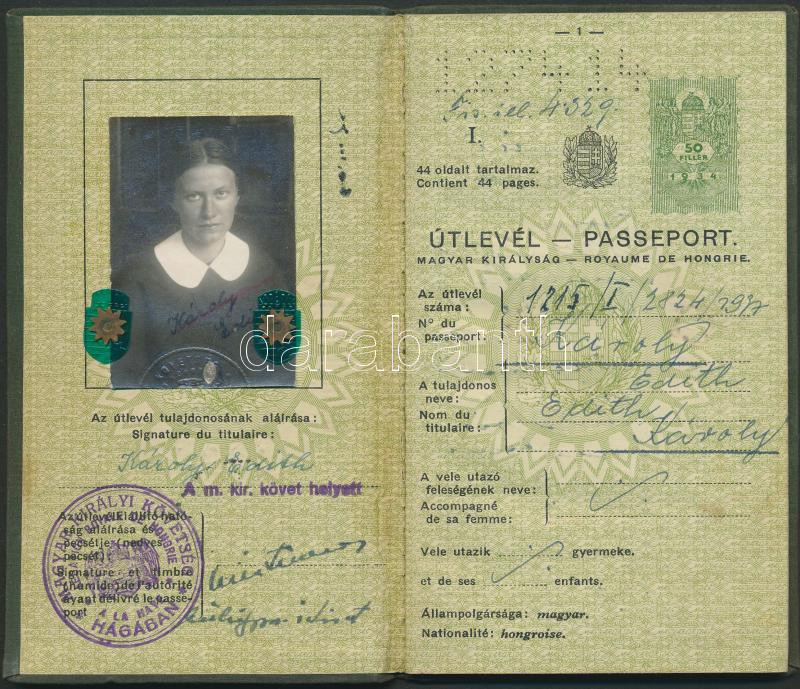 Károly
Edith
Az útlevél tulajdonosának aláírása:
Signature du titulaire:
Károly Edith
A m. kir. követ helyett
Az útlevelet kiállító ható-
ság aláírása és
pecsétje (nedves
pecsét):
Signature et timbre
(humide) de l'autorité
ayant délivré le passe-
port
MAGYAR KIRÁLYI KÖVETSÉG
HÁGÁBAN
A LA HAYE
— 1 —
127414
4329
I.
44 oldalt tartalmaz.
Contient 44 pages.
50
FILLÉR
1934
ÚTLEVÉL — PASSEPORT.
MAGYAR KIRÁLYSÁG — ROYAUME DE HONGRIE.
Az útlevél
száma:
N° du
passeport:
1215/I/2824/937
Károly
Edith
A tulajdonos
neve:
Nom du
titulaire:
Edith
Károly
A vele utazó
feleségének neve:
Accompagné
de sa femme:
Vele utazik gyermeke.
et de ses enfants.
Állampolgársága: magyar.
Nationalité: hongroise.
darabanth